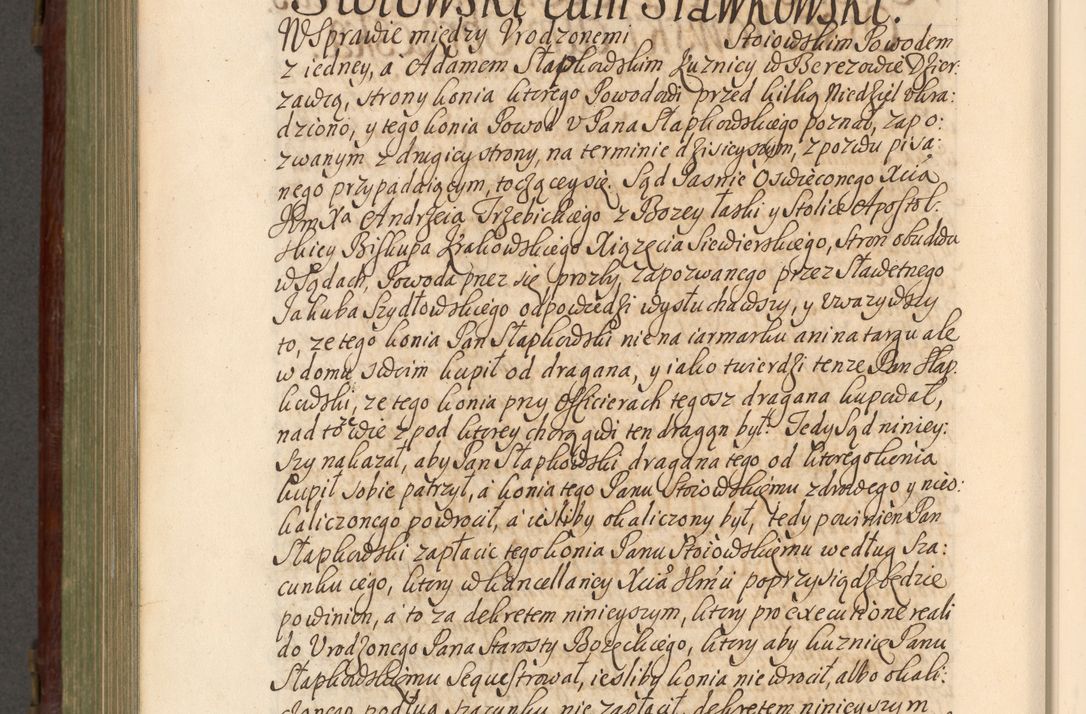 Stoiowski cum Sławkowski.
W Sprawie między Vrodzonemi Stoiowskim Powodem
z iedney, a Adamem Słapkowskim kuznicy w Berezowie Dzier:
zawcą, strony konia ktorego Powodowi przed kilką Niedziel vkra:
dziono, y tego konia Powod v Pana Słapkowskiego poznał, zapo:
zwanym z drugiey strony, na terminie dzisieyszym, z pozwu pisa:
nego przypadaiącym, toczącey się. Sąd Jasnie Oswieconego Xcia
Jhm Xa Andrzeia Trzebickiego z Bozey łaski y Stolice Apostol:
skiey Biskupa Krakowskiego Xiązęcia Siewierskiego, Stron obudwu
w Sądach, Powoda przez się prozby, zapozwanego przez Sławetnego
Jakuba Szydłowskiego odpowiedzi wysłuchawszy, y vwazywszy
to, ze tego konia Pan Słapkowski nie na iarmarku ani na targu ale
w domu swoim kupił od dragana, y iako twierdzi tenze Pan Słap:
kowski, ze tego konia przy Officierach tegosz dragana kupował,
nad to zewie z pod ktorey chorągwi ten dragan był. Tedy Sąd niniey:
szy nakazał, aby Pan Słapkowski dragana tego od ktorego konia
kupił sobie patrzył, a konia tego Panu Stoiowskiemu zdrowego y nieo:
kaliczonego powrocił, a iesliby okaliczony był, tedy powinien Pan
Słapkowski zapłacic tego konia Panu Stoiowskiemu według Sza:
cunku iego, ktory w kancellaryey Xcia Jhmci poprzysiądz będzie
powinien, a to za dekretem ninieyszym, ktory pro executione reali
do Vrodzonego Pana Starosty Bozęckiego, ktory aby kuznicę Panu
Słapkowskiemu sequestrował, iesliby konia nie wrocił, albo okali:
czonego podług szacunku nie zapłacił, dekretem ninieyszym